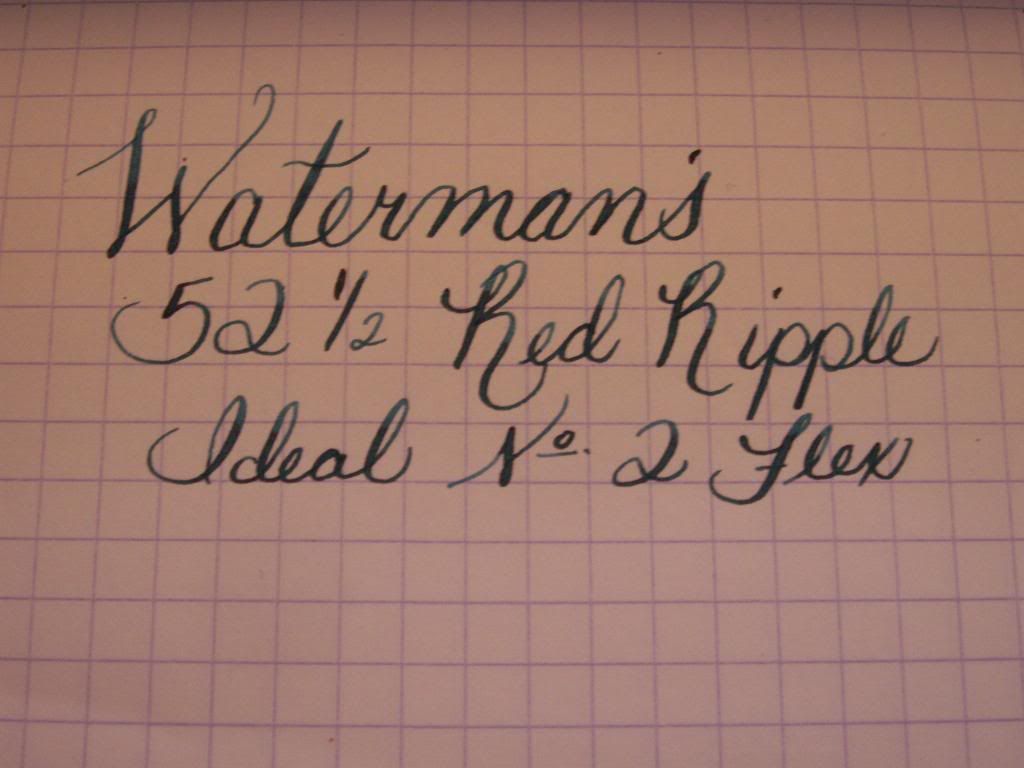 Waterman's
52 1/2 Red Ripple
Ideal Nº. 2 Flex